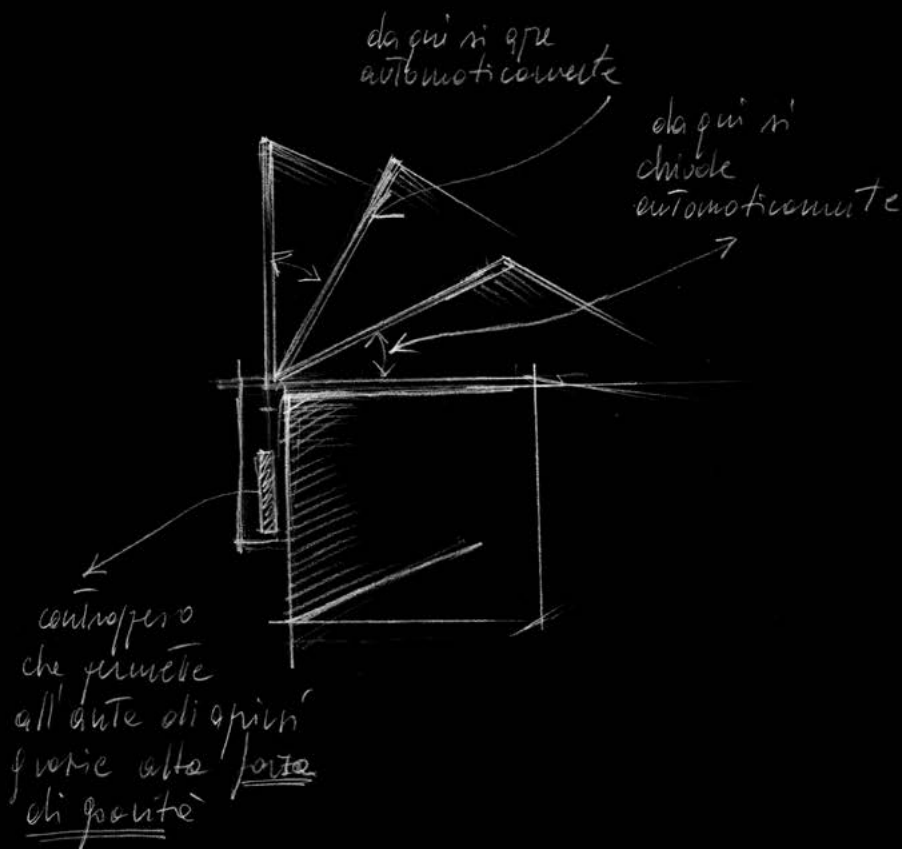 da qui si apre
automaticamente
da qui si
chiude
automaticamente
contrappeso
che permette
all'ante di aprirsi
grazie alla forza
di gravità